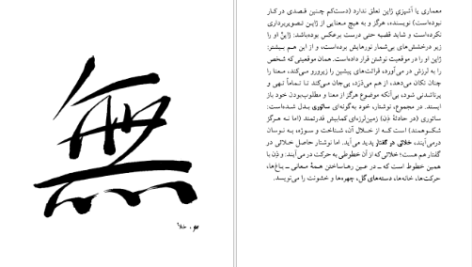 無
معماری یا آشپزیِ ژاپن تعلق ندارد (دست‌کم چنین قصدی در کار
نبوده‌است) نویسنده، هرگز و به هیچ معنایی از ژاپن تصویربرداری
نکرده‌است و شاید قضیه حتی درست برعکس بوده‌باشد: ژاپنْ او را
زیر درخشش‌های بی‌شمار نورهایش برده‌است، و از این هم بیشتر:
ژاپن او را در موقعیت نوشتن قرار داده‌است. همان موقعیتی که شخص
را به لرزش در می‌آورد، قرائت‌های پیشین را زیرورو می‌کند، معنا را
چنان تکان می‌دهد، از هم می‌دَرَد، بی‌جان می‌کند تا تماماً تهی و
شدنی شود، بی‌آنکه موضوع هرگز از معنا و مطلوب‌بودن خود باز
ایستد. در مجموع، نوشتار، خود به‌گونه‌ای ساتوری بدل شده‌است:
ساتوری (در حادثهٔ ذِن) زمین‌لرزه‌ای کمابیش قدرتمند (اما نه هرگز
شکوهمند) است که از خلال آن، شناخت و سوژه، به نوسان
درمی‌آیند، خلائی در گفتار پدید می‌آید. اما نوشتار حاصل خلائی در
گفتار هم هست؛ خلائی که از آن خطوطی به حرکت در می‌آیند و ذِن با
همین خطوط است که ـ در عین رهاساختن همهٔ معانی ـ باغ‌ها،
حرکت‌ها، خانه‌ها، دسته‌های گل، چهره‌ها و خشونت را می‌نویسد.